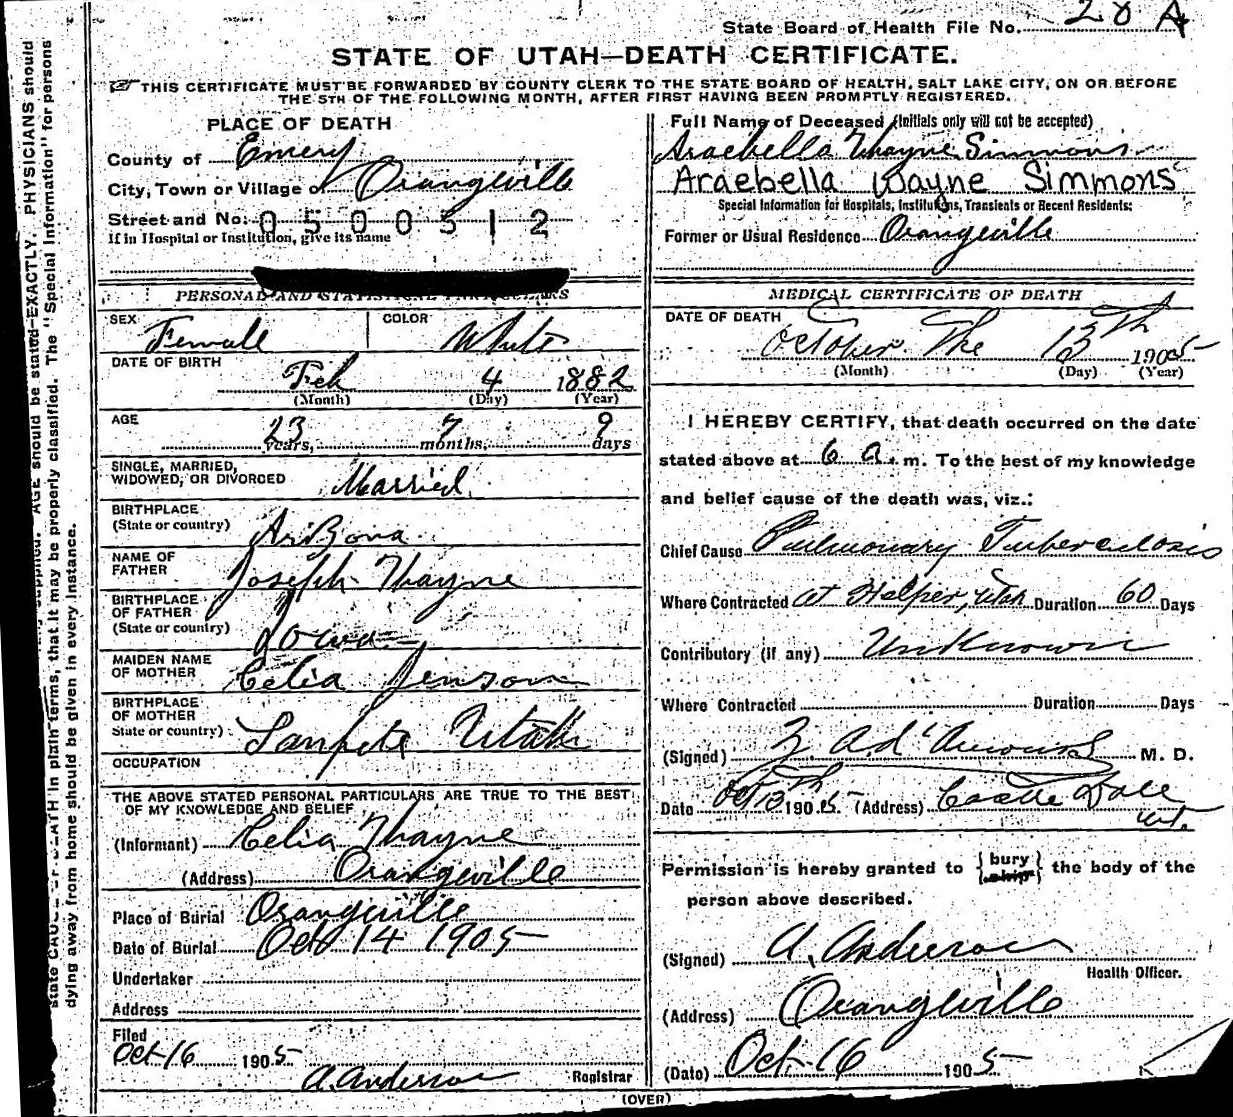 State Board of Health File No. 28 A
STATE OF UTAH—DEATH CERTIFICATE.
THIS CERTIFICATE MUST BE FORWARDED BY COUNTY CLERK TO THE STATE BOARD OF HEALTH, SALT LAKE CITY, ON OR BEFORE
THE 5TH OF THE FOLLOWING MONTH, AFTER FIRST HAVING BEEN PROMPTLY REGISTERED.
PLACE OF DEATH
County of Emery
City, Town or Village of Orangeville
Street and No. 0500512
If in Hospital or Institution, give its name
Full Name of Deceased (Initials only will not be accepted)
Araebella Thayne Simmons
Araebella Wayne Simmons
Special Information for Hospitals, Institutions, Transients or Recent Residents:
Former or Usual Residence Orangeville
PERSONAL AND STATISTICAL PARTICULARS
SEX Female COLOR White
DATE OF BIRTH
Feb 4 1882
(Month) (Day) (Year)
AGE
23 years, 7 months, 9 days
SINGLE, MARRIED,
WIDOWED, OR DIVORCED Married
BIRTHPLACE
(State or country) Arizona
NAME OF
FATHER Joseph Thayne
BIRTHPLACE
OF FATHER
(State or country) Iowa
MAIDEN NAME
OF MOTHER Celia Jenson
BIRTHPLACE
OF MOTHER
State or country) Sanpete Utah
OCCUPATION
THE ABOVE STATED PERSONAL PARTICULARS ARE TRUE TO THE BEST
OF MY KNOWLEDGE AND BELIEF
(Informant) Celia Thayne
(Address) Orangeville
Place of Burial Orangeville
Date of Burial Oct 14 1905
Undertaker
Address
Filed
Oct 16 1905
A. Anderson Registrar
MEDICAL CERTIFICATE OF DEATH
DATE OF DEATH
October The 13th 1905
(Month) (Day) (Year)
I HEREBY CERTIFY, that death occurred on the date
stated above at 6 a. m. To the best of my knowledge
and belief cause of the death was, viz.:
Chief Cause Pulmonary Tuberculosis
Where Contracted at Helper, Utah Duration 60 Days
Contributory (if any) Unknown
Where Contracted Duration Days
(Signed) M. D.
Date Oct 13th 1905 (Address) Castle Dale
Ut.
Permission is hereby granted to {bury
ship} the body of the
person above described.
(Signed) A. Anderson
Health Officer.
(Address) Orangeville
(Date) Oct. 16 1905
(OVER)
AGE should be stated EXACTLY. PHYSICIANS should
state CAUSE OF DEATH in plain terms, that it may be properly classified. The "Special Information" for persons
dying away from home should be given in every instance.